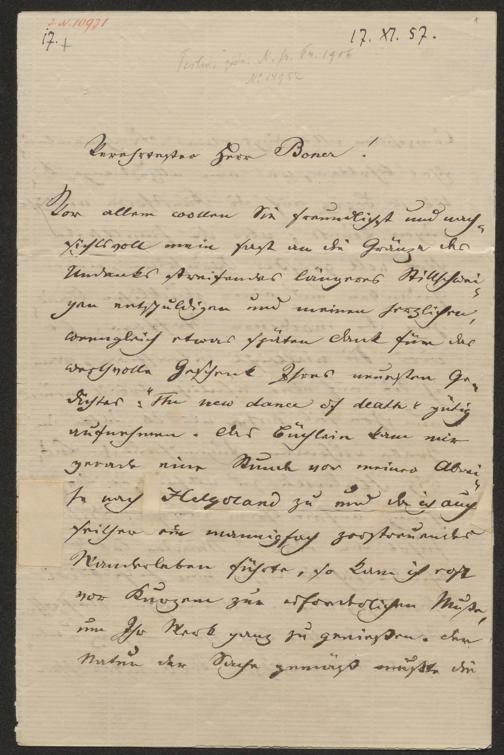 I. N. 10931
17. XI. 57.
N. fr. Pr. 1906
Verehrtester Herr Boner!
Vor allem wollen Sie freundlichst und nach-
sichtsvoll mein fast an die Gränze des
Undanks streifendes längeres Stillschwei-
gen entschuldigen und meinen herzlichen,
wenngleich etwas späten Dank für das
werthvolle Geschenk Ihres neuesten Ge-
dichtes: "The new dance of death" gütig
aufnehmen. Das Büchlein kam mir
gerade eine Stunde vor meiner Abrei-
se nach Helgoland zu und da ich auch
seither ein mannigfach zerstreuendes
Wanderleben führte, so kam ich erst
vor Kurzem zur erforderlichen Muße,
um Ihr Werk ganz zu genießen. Der
Natur der Sache gemäß mußte die